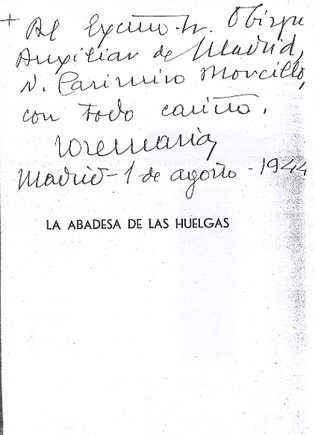 + Al Excmo. Sr. Obispo
Auxiliar de Madrid,
D. Casimiro Morcillo,
con todo cariño.
Josemaría
Madrid - 1 de agosto - 1944
LA ABADESA DE LAS HUELGAS